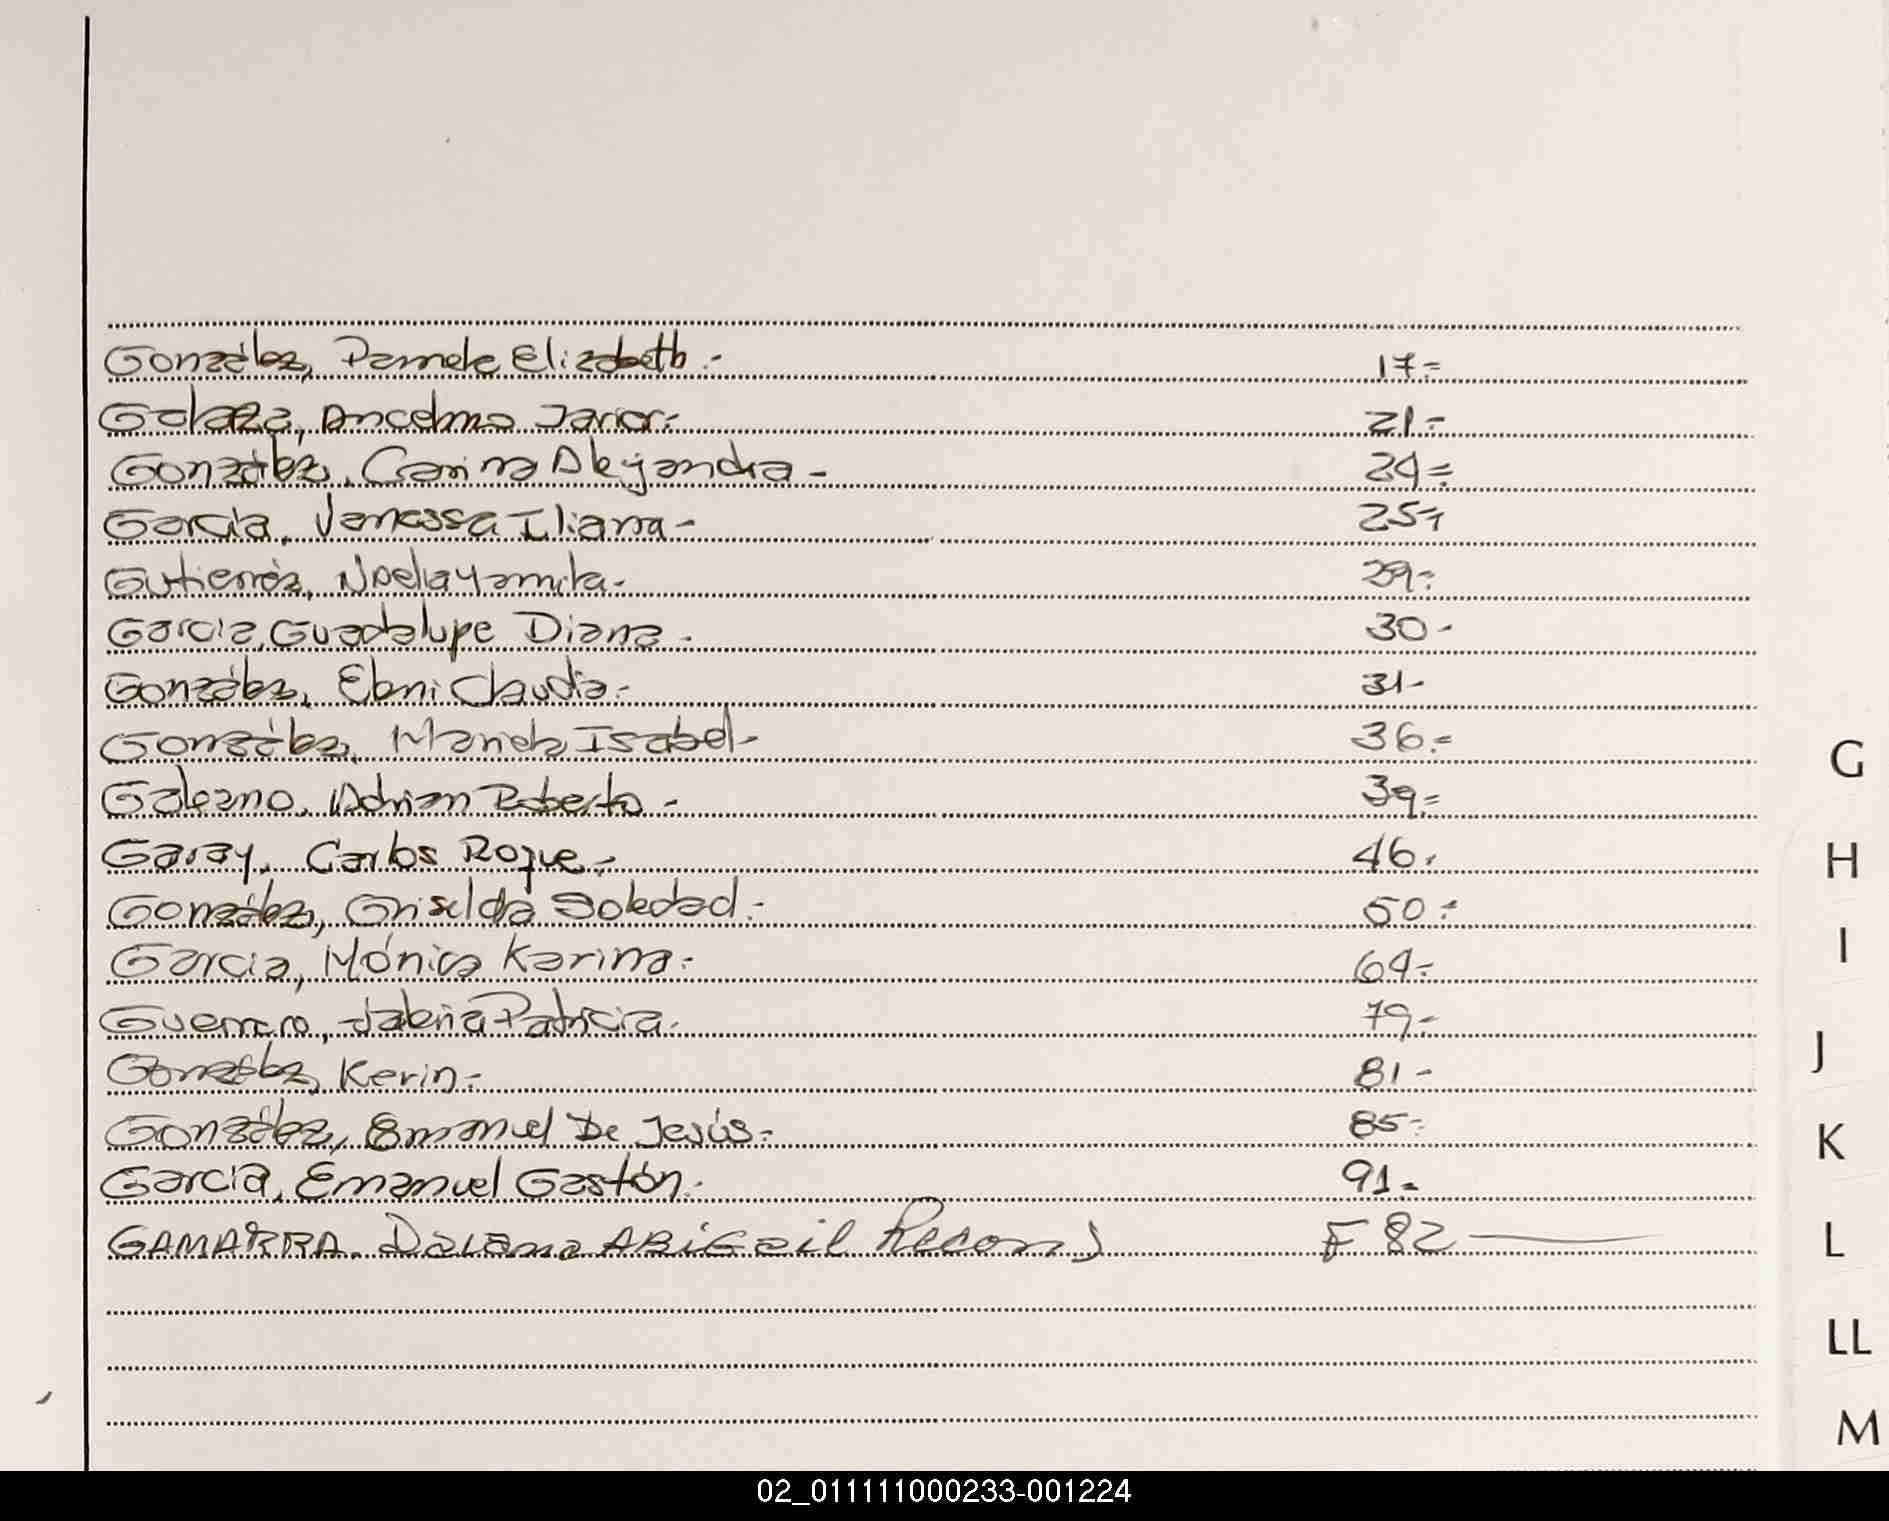 González, Pamela Elizabeth.- 17.=
Galarza, Ancelmo Javier.- 21.=
González, Carina Alejandra - 24.=
García, Vanessa Iliana - 25.-
Gutierréz, Noelia Yamila.- 29.-
García, Guadalupe Diana.- 30.-
González, Eleni Claudia.- 31.-
González, Mariela Isabel.- 36.=
Galeano, Adrian Roberto.- 39.=
Garay, Carlos Roque.- 46.
González, Griselda Soledad.- 50.=
García, Mónica Karina.- 64.-
Guerrero, Valeria Patricia. 79.-
González, Kevin.- 81-
González, Emanuel De Jesús.- 85.-
García, Emanuel Gastón.- 91.-
GAMARRA. Daiana ABiGail Recon) F 82
G
H
I
J
K
L
LL
M
02_011111000233-001224